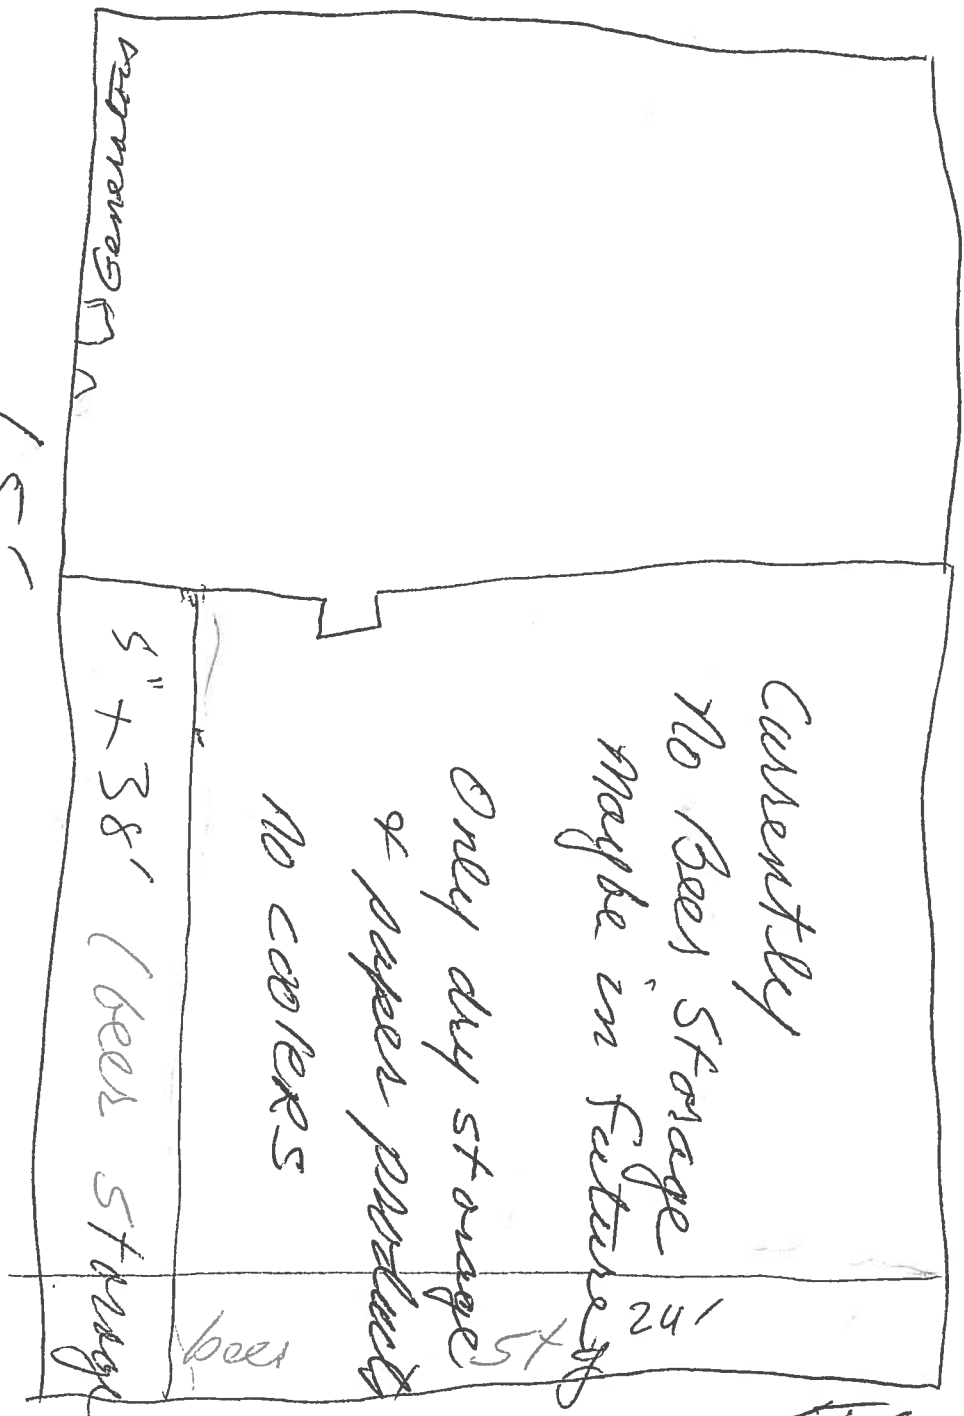 Generators
Currently
No Beer Storage
Maybe in Future
Only dry storage
& paper products
No coolers
24'
beer st
5" + 38' (beer storage